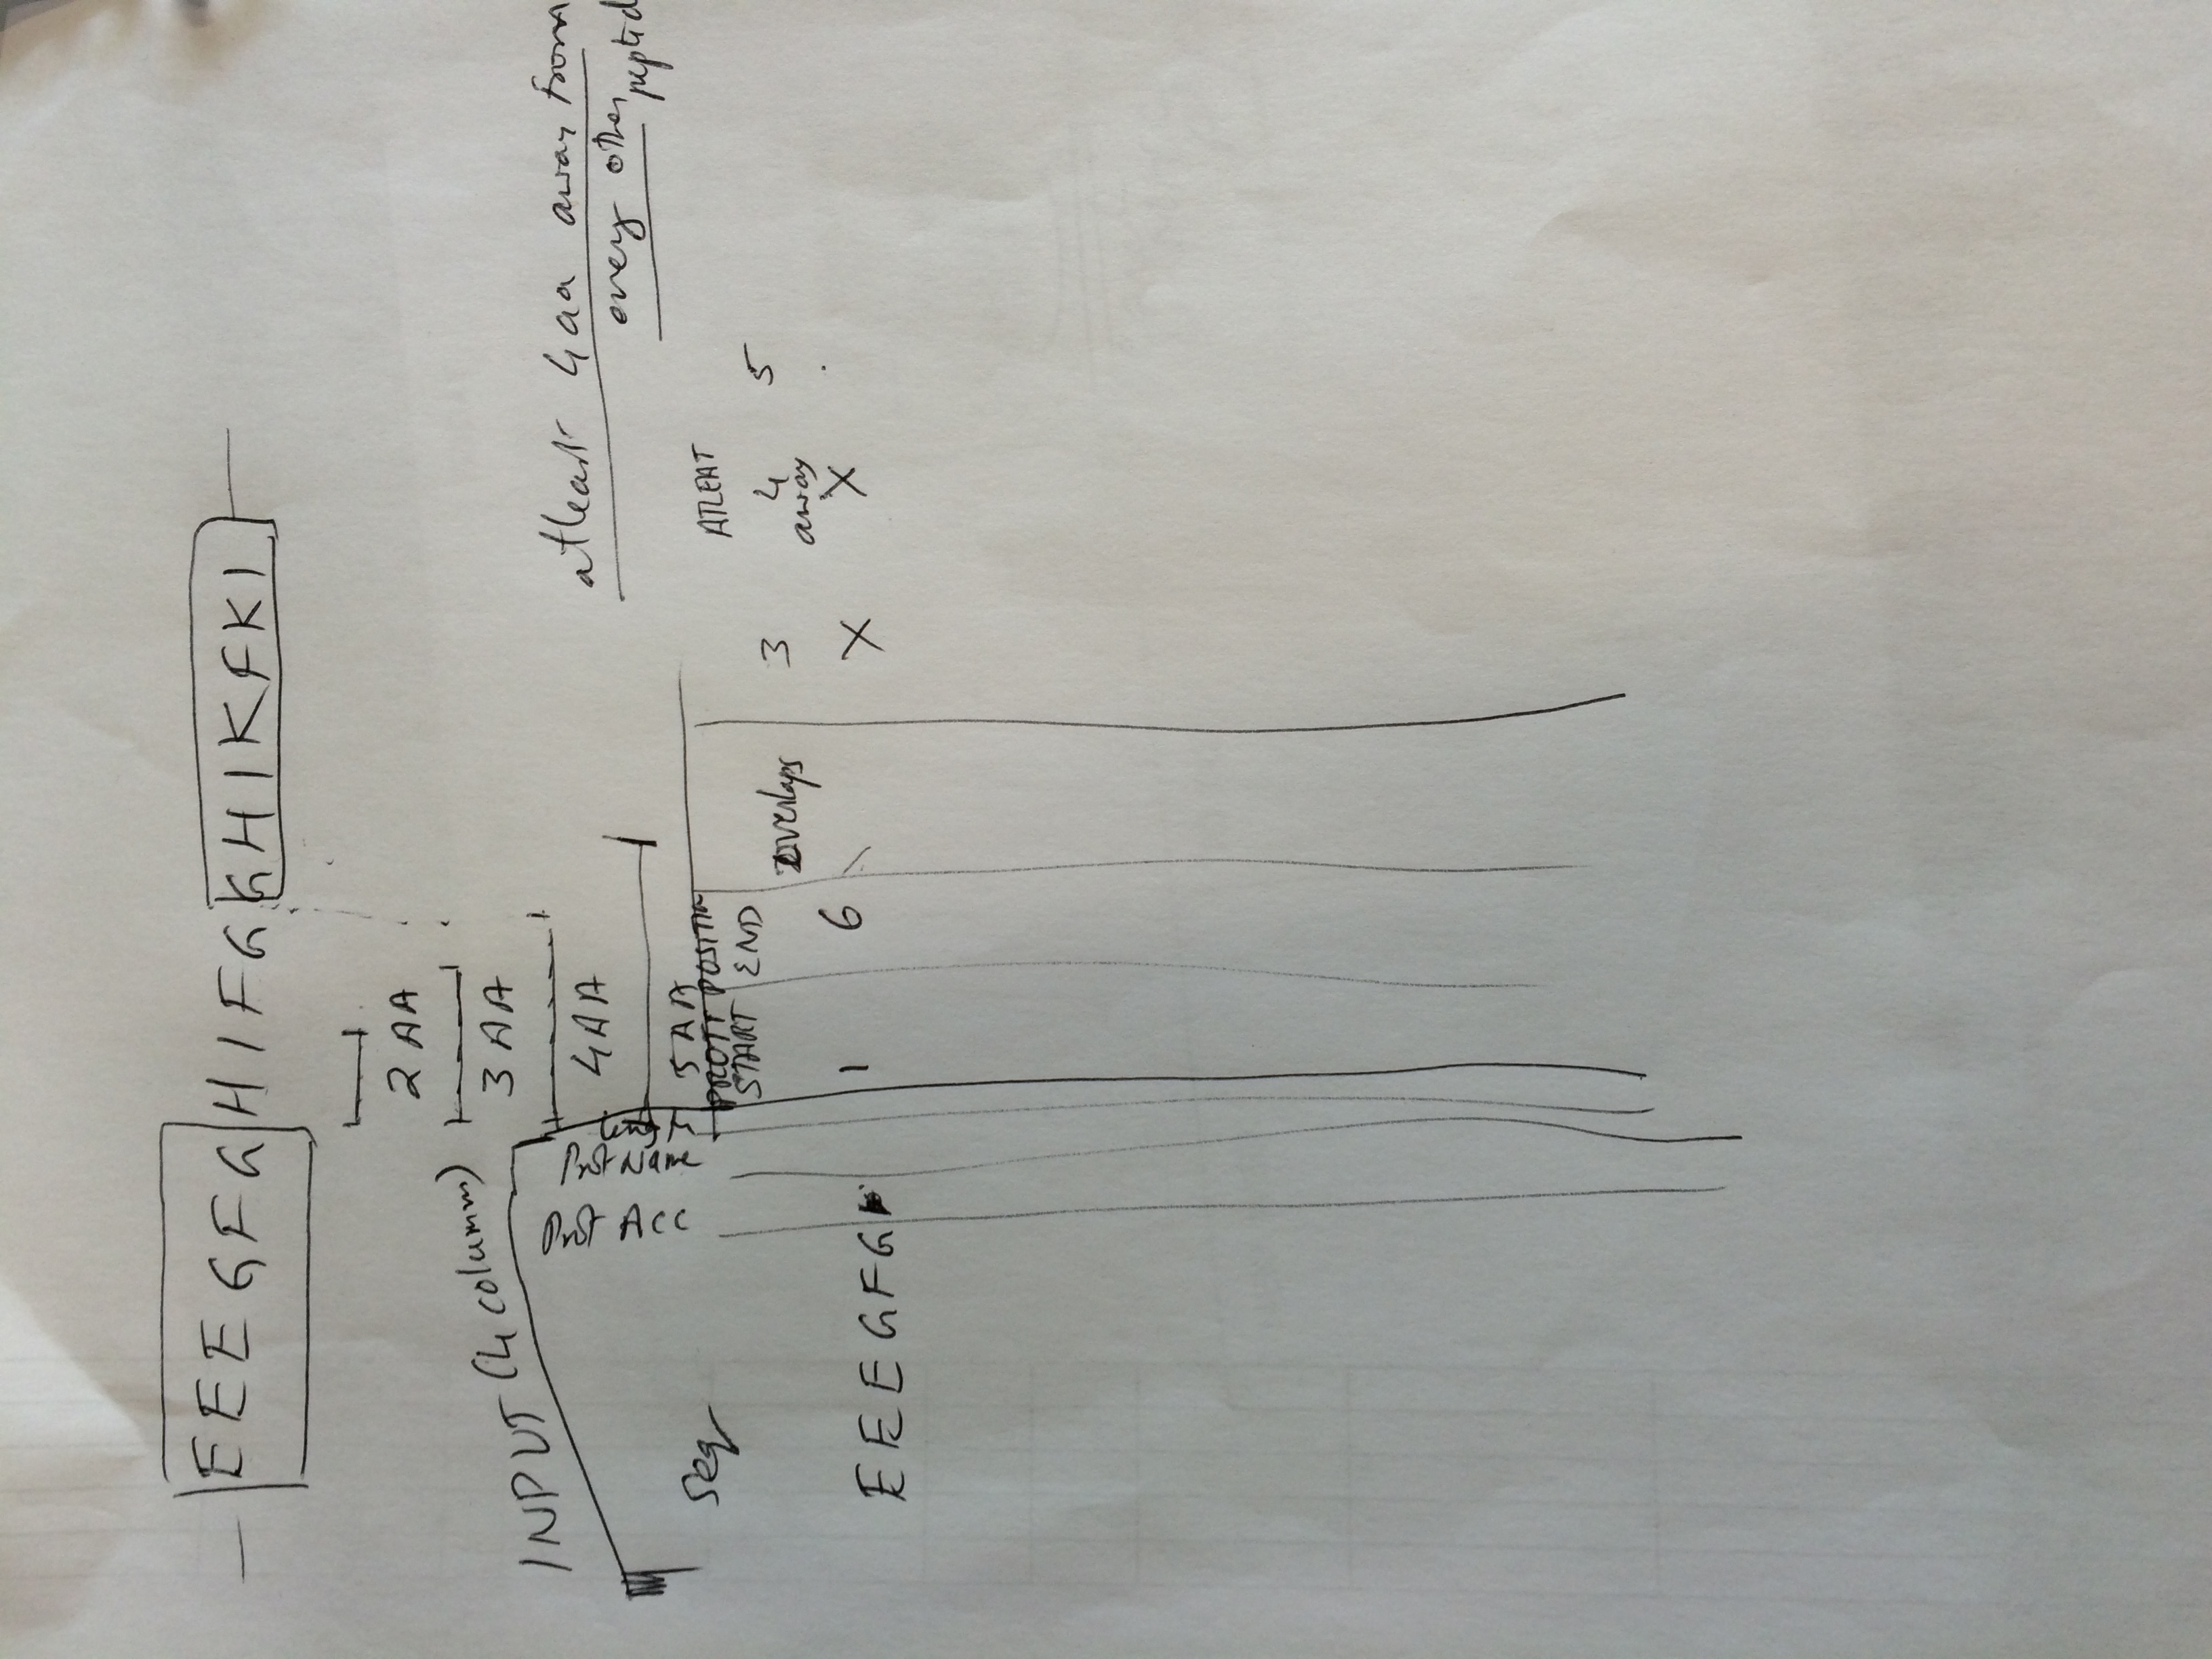 EEEGFGHIFGGHIKFKI
2 AA
3 AA
4AA
5 AA
INPUT (4 columns)
atleast 4aa away from
every other peptid
Seq
Prot Acc
Prot Name
PROTT POSITION
START END
overlaps
3
ATLEAT
4
away
5
EEEGFG 1 6 X X